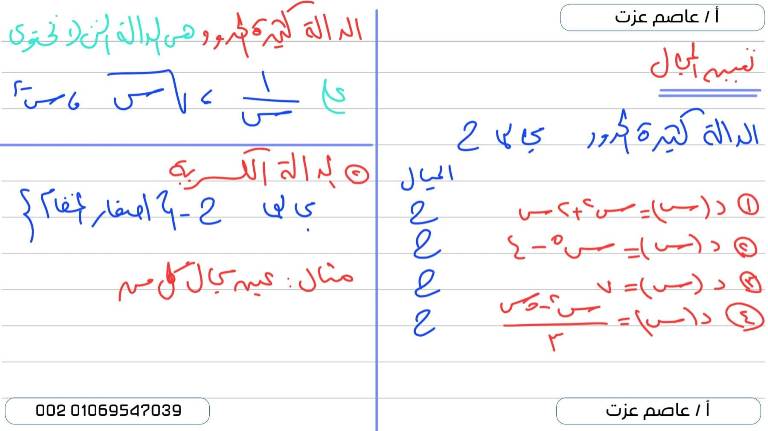 أ / عاصم عزت
تعيين المجال
الدالة كثيرة الحدود مجالها ح
المجال
① د(س) = س² + ٢س ح
② د(س) = س⁵ - ٤ ح
③ د(س) = ٧ ح
④ د(س) = (س² - ٥س) / ٣ ح
الدالة كثيرة الحدود هي الدالة التي لا تحتوي
على ١/س ، √س ، س⁻²
② الدالة الكسرية
مجالها ح - {أصفار المقام}
مثال: عين مجال كل من
002 01069547039
أ / عاصم عزت